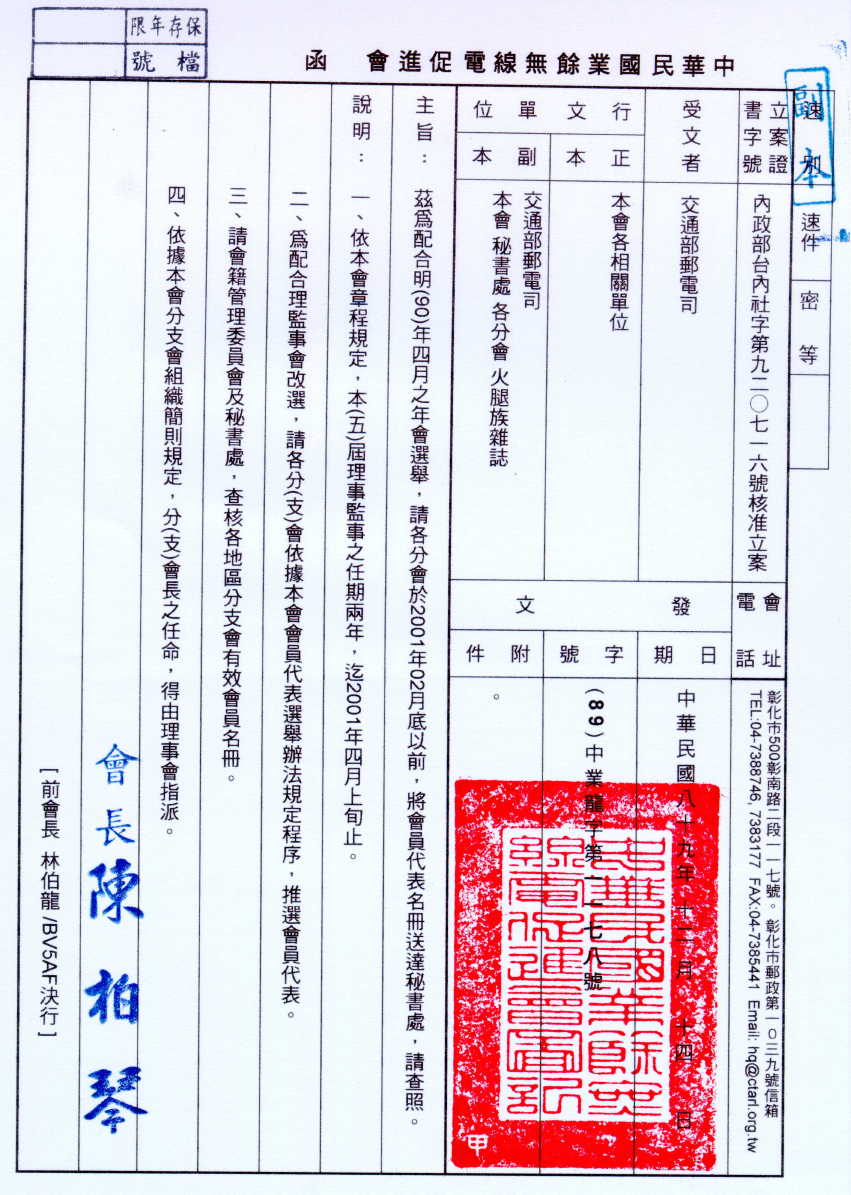 保存年限
檔號
中華民國業餘無線電促進會 函
副本
速別
速件
密等
立案證書字號
內政部台內社字第九二〇七一六號核准立案
會址
電話
彰化市500彰南路二段一一七號。 彰化市郵政第一0三九號信箱
TEL:04-7388746, 7383177 FAX:04-7385441 Email: hq@ctarl.org.tw
受文者
交通部郵電司
行文單位
正本
本會各相關單位
副本
交通部郵電司
本會 秘書處 各分會 火腿族雜誌
發文
日期
中華民國八十九年十二月十四日
字號
(89)中業龍字第一一七八號
附件
。
主旨：茲爲配合明(90)年四月之年會選舉，請各分會於2001年02月底以前，將會員代表名冊送達秘書處，請查照。
說明：一、依本會章程規定，本(五)屆理事監事之任期兩年，迄2001年四月上旬止。
二、爲配合理監事會改選，請各分(支)會依據本會會員代表選舉辦法規定程序，推選會員代表。
三、請會籍管理委員會及秘書處，查核各地區分支會有效會員名冊。
四、依據本會分支會組織簡則規定，分(支)會長之任命，得由理事會指派。
會長陳柏琴
[ 前會長 林伯龍 /BV5AF決行 ]
中華民國業餘無
線電促進會圖記
甲